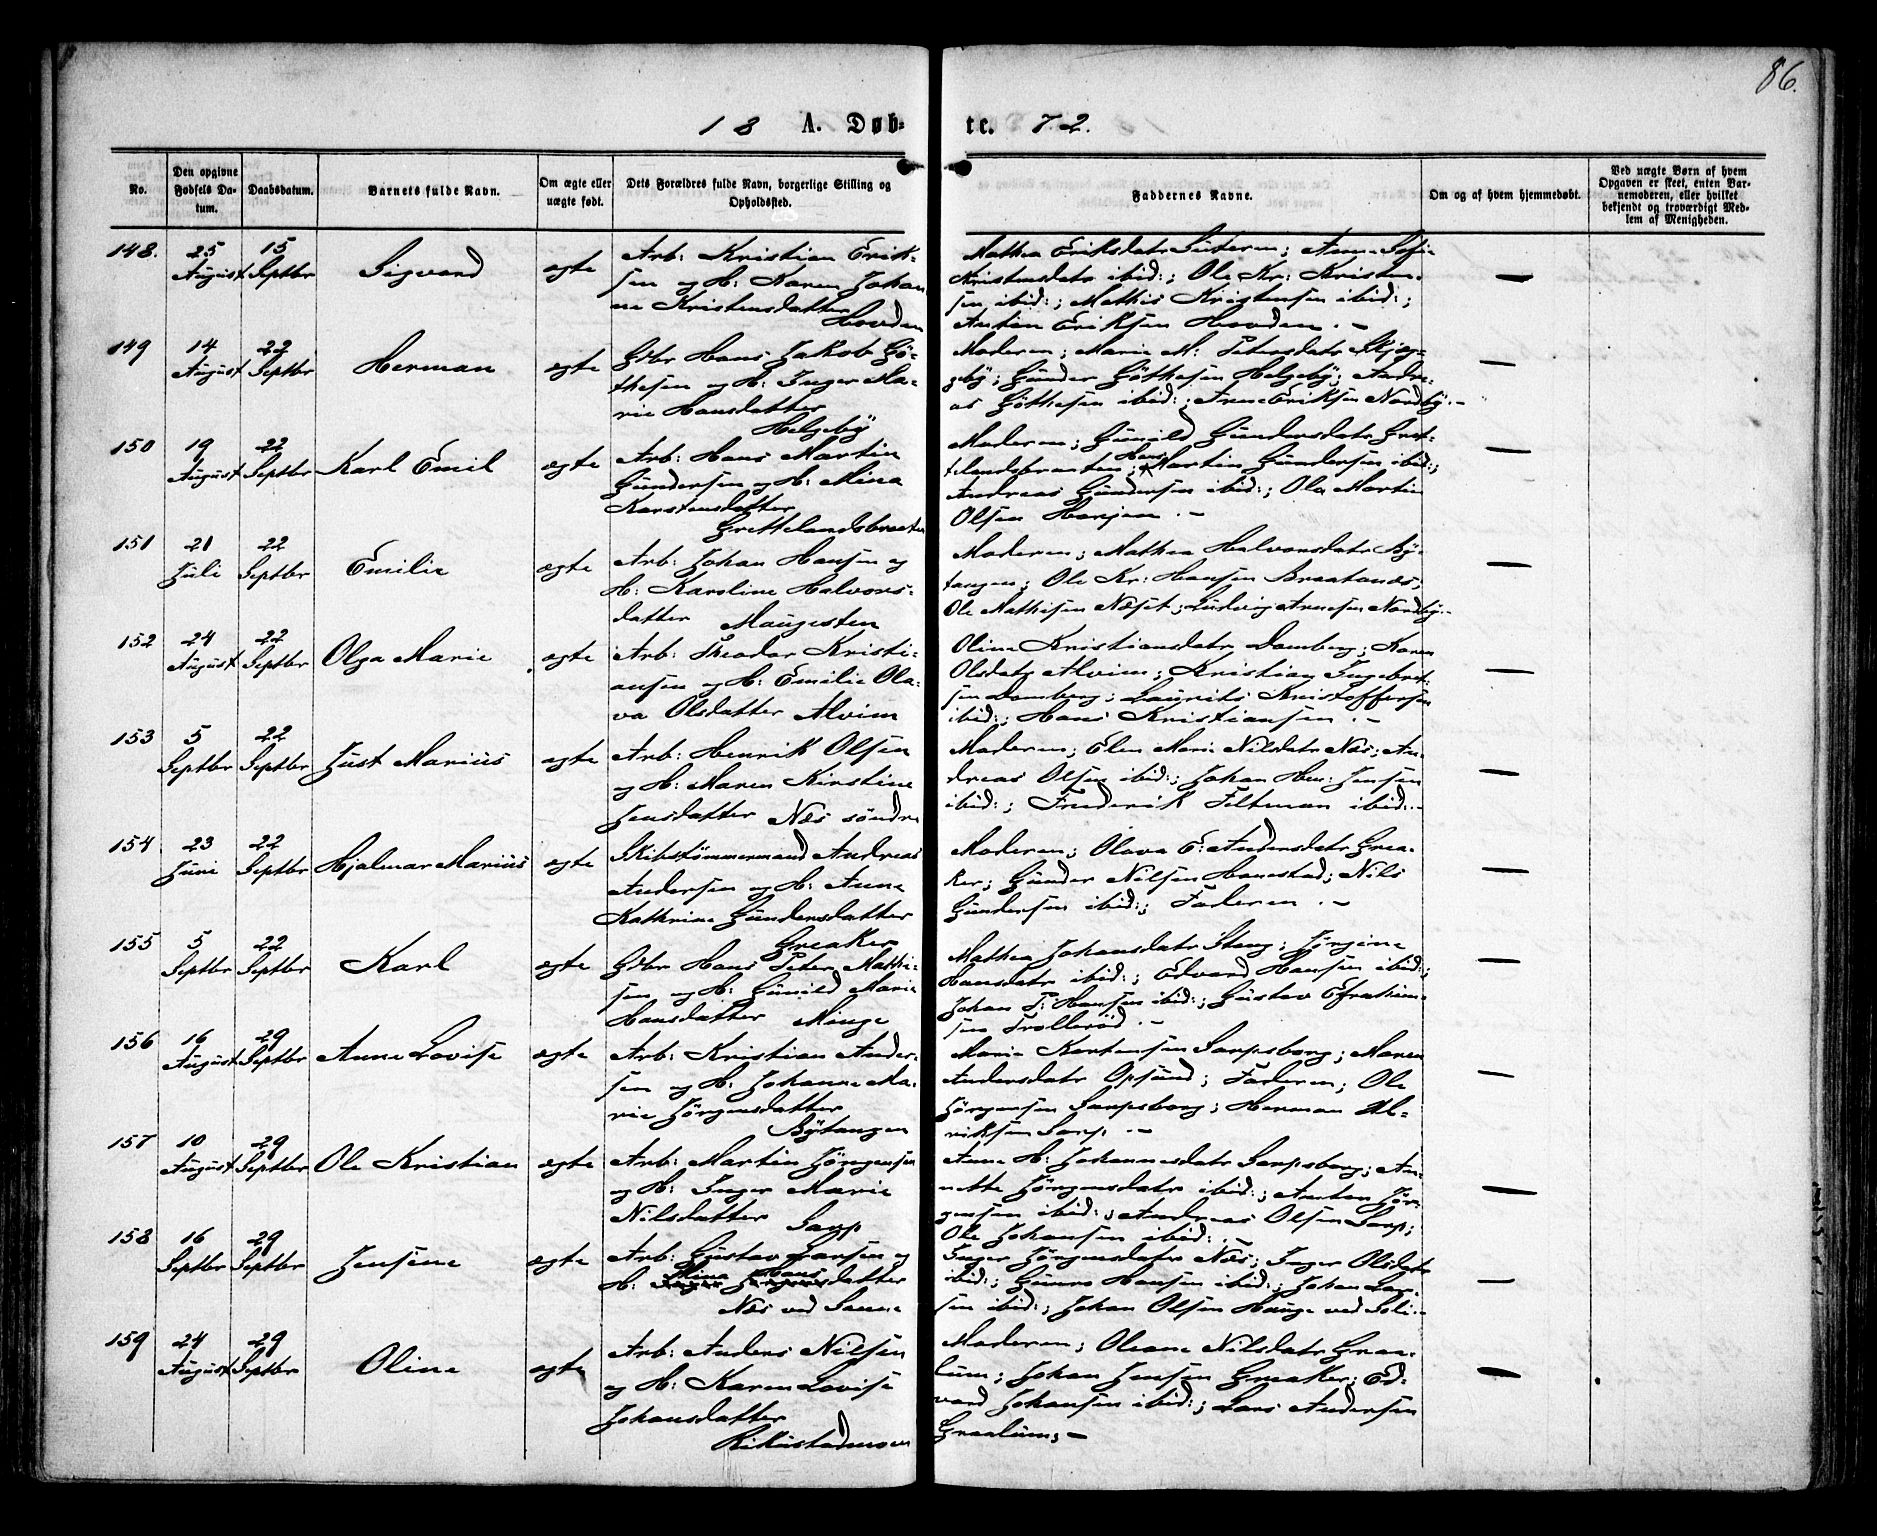 86.
18 A. Døb- te. 72.
No.
Den opgivne Fødsels Datum.
Daabsdatum.
Barnets fulde Navn.
Om ægte eller uægte født.
Dets Forældres fulde Navn, borgerlige Stilling og Opholdssted.
Faddernes Navne.
Om og af hvem hjemmedøbt.
Ved uægte Børn af hvem Opgaven er skeet, enten Barnemoderen, eller hvilket bekjendt og troværdigt Medlem af Menigheden.
148. 25 August 15 Septbr Sigvard ægte
Arb: Kristian Erik-
sen og H: Karen Johan
ne Kristensdatter
Hovden
Mathea Eriksdatr ; Anne Sofi
Kristensdatr ibid:; Ole Kr: Kristen-
sen ibid:; Mathis Kristensen ibid:;
Anton Eriksen Hovden. -
149 14 August 22 Septbr Herman ægte
Gdbr Hans Jakob Gö-
thesen og H: Inger Ma-
rie Hansdatter
Helgeby
Moderen; Marie M: Petersdatr Skjæg-
geby; Gunder Göthesen Helgeby; Andre-
as Göthesen ibid:; Arne Eriksen Nordby. -
150 19 August 22 Septbr Karl Emil ægte
Arb: Hans Martin
Gundersen og H: Mina
Karstensdatter
Grettelandsbraaten
Moderen; Gunild Gundersdatr Gret-
telandsbraaten; Hans Martin Gundersen ibid:;
Andreas Gundersen ibid:; Ole Martin
Olsen . -
151 21 Juli 22 Septbr Emilie ægte
Arb: Johan Hansen og
H: Karoline Halvors-
datter Maugesten
Moderen; Mathea Halvorsdatr By-
tangen; Ole Kr: Hansen Braatanæs;
Ole Mathisen Næset; Ludvig Arnesen Nordby. -
152 24 August 22 Septbr Olga Marie ægte
Arb: Theodor Kristi-
ansen og H: Emilie Ola-
va Olsdatter Alvim
Oline Kristiansdatr Domberg; Karen
Olsdatr Alvim; Kristian Ingebret-
sen Domberg; Laurits Kristoffersen
ibid:; Hans Kristiansen. -
153 5 Septbr 22 Septbr Just Marius ægte
Arb: Henrik Olsen
og H: Maren Kirstine
Jensdatter Næs söndre
Moderen; Elen Marie Nilsdatr Næs; An-
dreas Olsen ibid:; Johan Hen: Jensen
ibid:; Frederik Feltman ibid: -
154 23 Juni 22 Septbr Hjalmar Marius ægte
Skibstømmermand Andreas
Andersen og H: Anne
Kathrine Gundersdatter
Greaker
Moderen; Olava E: Andersdatr Grea-
ker; Gunder Nilsen Hanestad; Nils
Gundersen ibid:; Faderen. -
155 5 Septbr 22 Septbr Karl ægte
Gdbr Hans Peter Mathi-
sen og H: Gunild Marie
Hansdatter Minge
Mathea Johansdatr Stang; Jørgine
Hansdatr ibid:; Edvard Hansen ibid:;
Johan P: Hansen ibid:; Gustav Efraim-
sen Trolleröd. -
156 16 August 29 Septbr Anne Lovise ægte
Arb: Kristian Ander-
sen og H: Johanne Ma-
rie Jörgensdatter
Bytangen
Marie Karlensen Sarpsborg; Maren
Andersdatr Opsund; Faderen; Ole
Jörgensen Sarpsborg; Herman Ul-
riksen Sarp. -
157 10 August 29 Septbr Ole Kristian ægte
Arb: Martin Jörgensen
og H: Inger Marie
Nilsdatter Sarp
Anne H: Johannesdatr Sarpsborg; An-
nette Jörgensdatr ibid:; Anton Jör-
gensen ibid:; Andreas Olsen Sarp;
Ole Johansen ibid: -
158 16 Septbr 29 Septbr Jensine ægte
Arb: Gustav Larsen og
H: Mina Hansdatter
Næs ved Sanne
Inger Jörgensdatr Næs; Inger Olsdatr
ibid:; Gunno Hansen ibid:; Johan Lar-
sen ibid:; Johan Olsen Hauge ved Soli. -
159 24 August 29 Septbr Oline ægte
Arb: Anders Nilsen
og H: Karen Lovise
Johansdatter
Rikustadmoen
Moderen; Oleane Nilsdatr Graa-
lum; Johan Jensen Greaker; Ed-
vard Johansen ibid:; Lars Andersen
Graalum; -